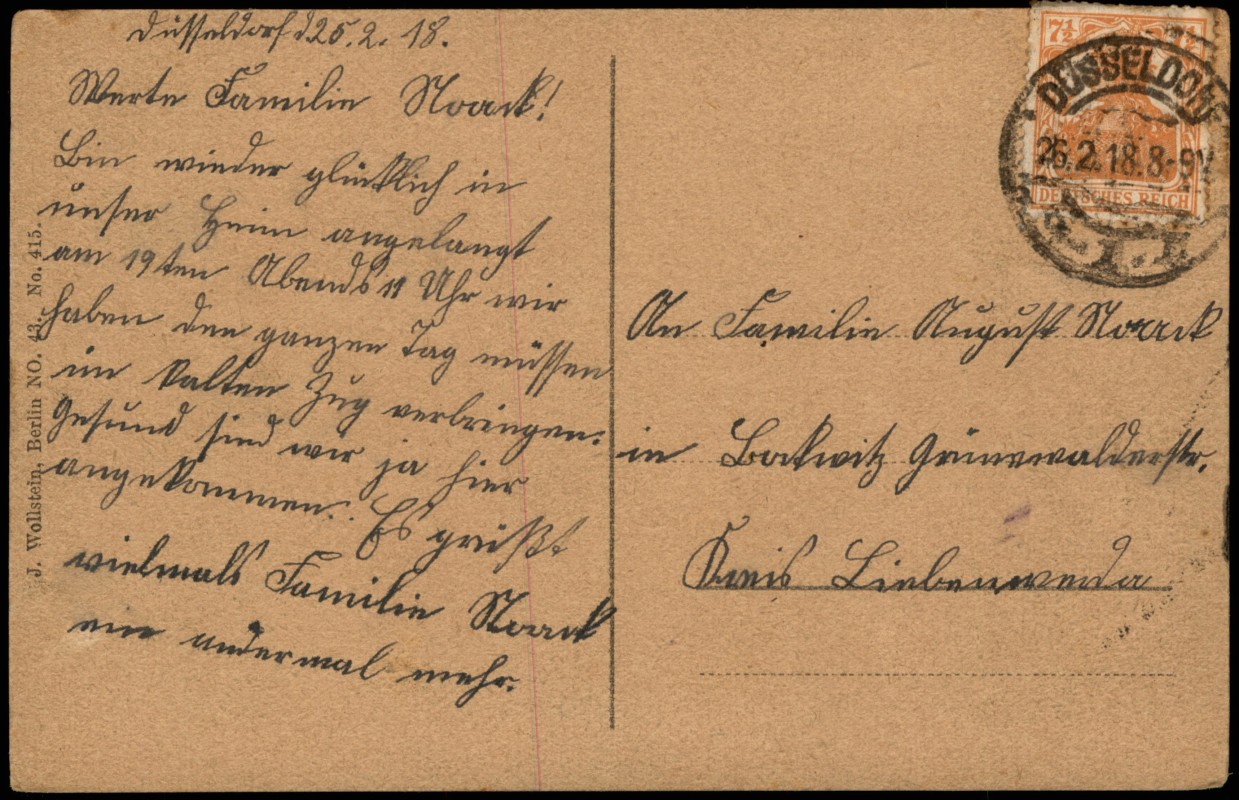 Düsseldorf d 25.2.18.
Werte Familie Noack!
Bin wieder glücklich in
unser Heim angelangt
am 19ten Abends 11 Uhr wir
haben den ganzen Tag müssen
im kalten Zug verbringen.
Gesund sind wir ja hier
angekommen. Es grüßt
vielmals Familie Noack
ein andermal mehr.
J. Wollstein, Berlin NO. 43. No. 415.
7½ 7½
DÜSSELDORF
26.2.18.8-9V
DEUTSCHES REICH
An Familie August Noack
in Bockwitz Grünewalderstr.
Kreis Liebenwerda